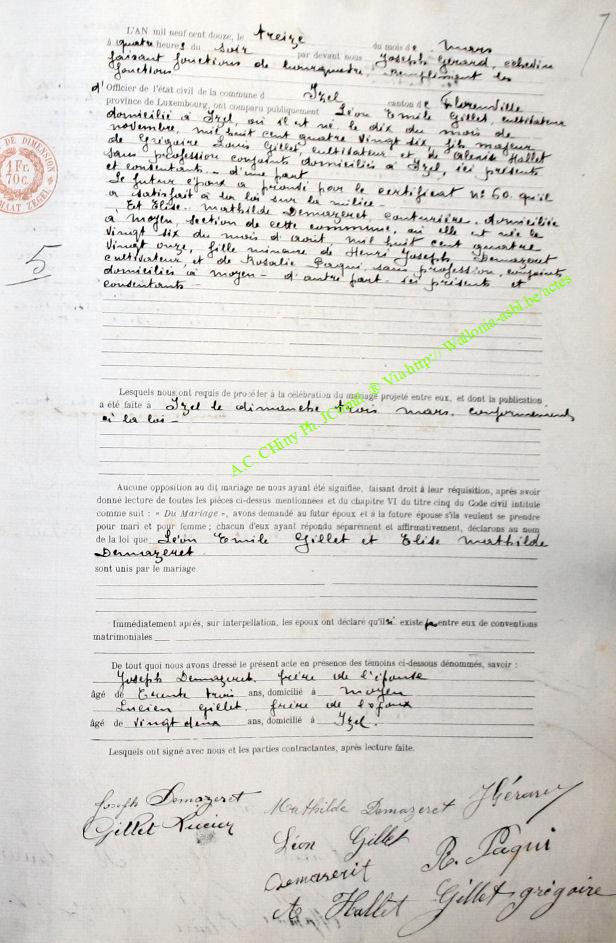 7
L'AN mil neuf cent douze, le treize du mois de mars
à quatre heures du soir par devant nous Joseph Gérard, échevin
faisant fonctions de bourgmestre, remplissant les
fonctions
d'Officier de l'état civil de la commune d' Izel canton de Florenville
province de Luxembourg, ont comparu publiquement Léon Emile Gillet, cultivateur
domicilié à Izel, où il est né le dix du mois de
novembre, mil huit cent quatre vingt six, fils majeur
de Grégoire Louis Gillet, cultivateur et de Hallet
sans profession conjoints domiciliés à Izel, ici présents
et consentants - d'une part
Le futur époux a prouvé par le certificat No 60. qu'il
a satisfait à la loi sur la milice -
Et Elise Mathilde Demazeret, couturière, domiciliée
à Moyen, section de cette commune, où elle est née le
vingt six du mois d'août, mil huit cent quatre
vingt onze, fille mineure de Henri Joseph Demazeret
cultivateur, et de Rosalie Paqui, sans profession, conjoints
domiciliés à moyen - d'autre part - ici présents et
consentants -
DE DIMENSION
1 Fr.
70 C.
MAAT ZEGEL
5
Lesquels nous ont requis de procéder à la célébration du mariage projeté entre eux, et dont la publication
a été faite à Izel le dimanche trois mars, conformément
à la loi -
A.C. CHiny Ph. JC ® Via http:// Wallonia-asbl.be/actes
Aucune opposition au dit mariage ne nous ayant été signifiée, faisant droit à leur réquisition, après avoir
donné lecture de toutes les pièces ci-dessus mentionnées et du chapitre VI du titre cinq du Code civil intitulé
comme suit : « Du Mariage », avons demandé au futur époux et à la future épouse s'ils veulent se prendre
pour mari et pour femme ; chacun d'eux ayant répondu séparément et affirmativement, déclarons au nom
de la loi que Léon Emile Gillet et Elise Mathilde
Demazeret.
sont unis par le mariage.
Immédiatement après, sur interpellation, les époux ont déclaré qu'il existe pas entre eux de conventions
matrimoniales
De tout quoi nous avons dressé le présent acte en présence des témoins ci-dessous dénommés, savoir :
Joseph Demazeret, frère de l'épouse
âgé de trente trois ans, domicilié à Moyen
Lucien Gillet, frère de l'époux
âgé de vingt deux ans, domicilié à Izel.
Lesquels ont signé avec nous et les parties contractantes, après lecture faite.
Joseph Demazeret Mathilde Demazeret JGérard
Gillet Lucien
Léon Gillet R. Paqui
Demazeret
A Hallet Gillet grégoire